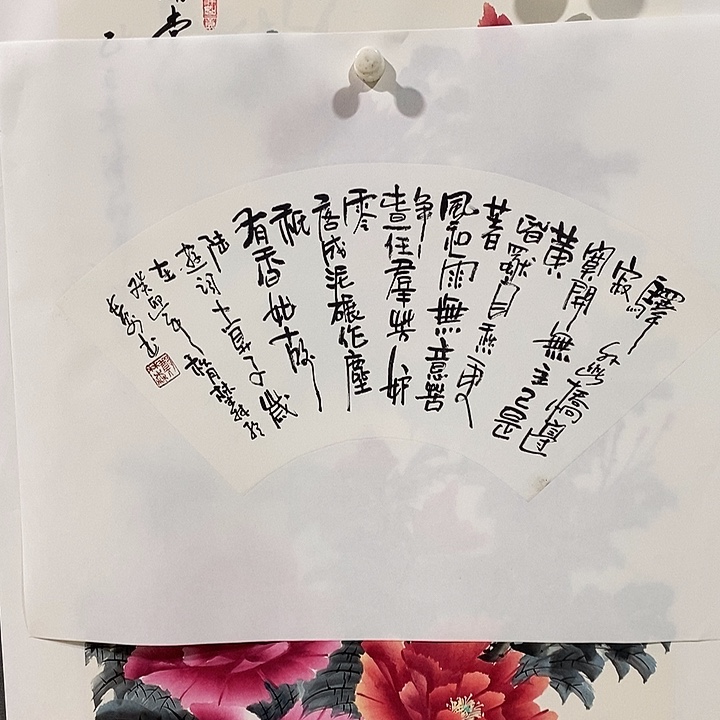 驛
外斷橋邊
寂
寞開無主已是
黃
昏獨自愁更
著
風和雨無意苦
爭
春一任羣芳妒
零
落成泥碾作塵
祇
有香如故
陸
遊詞卜算子歲
在
癸卯年